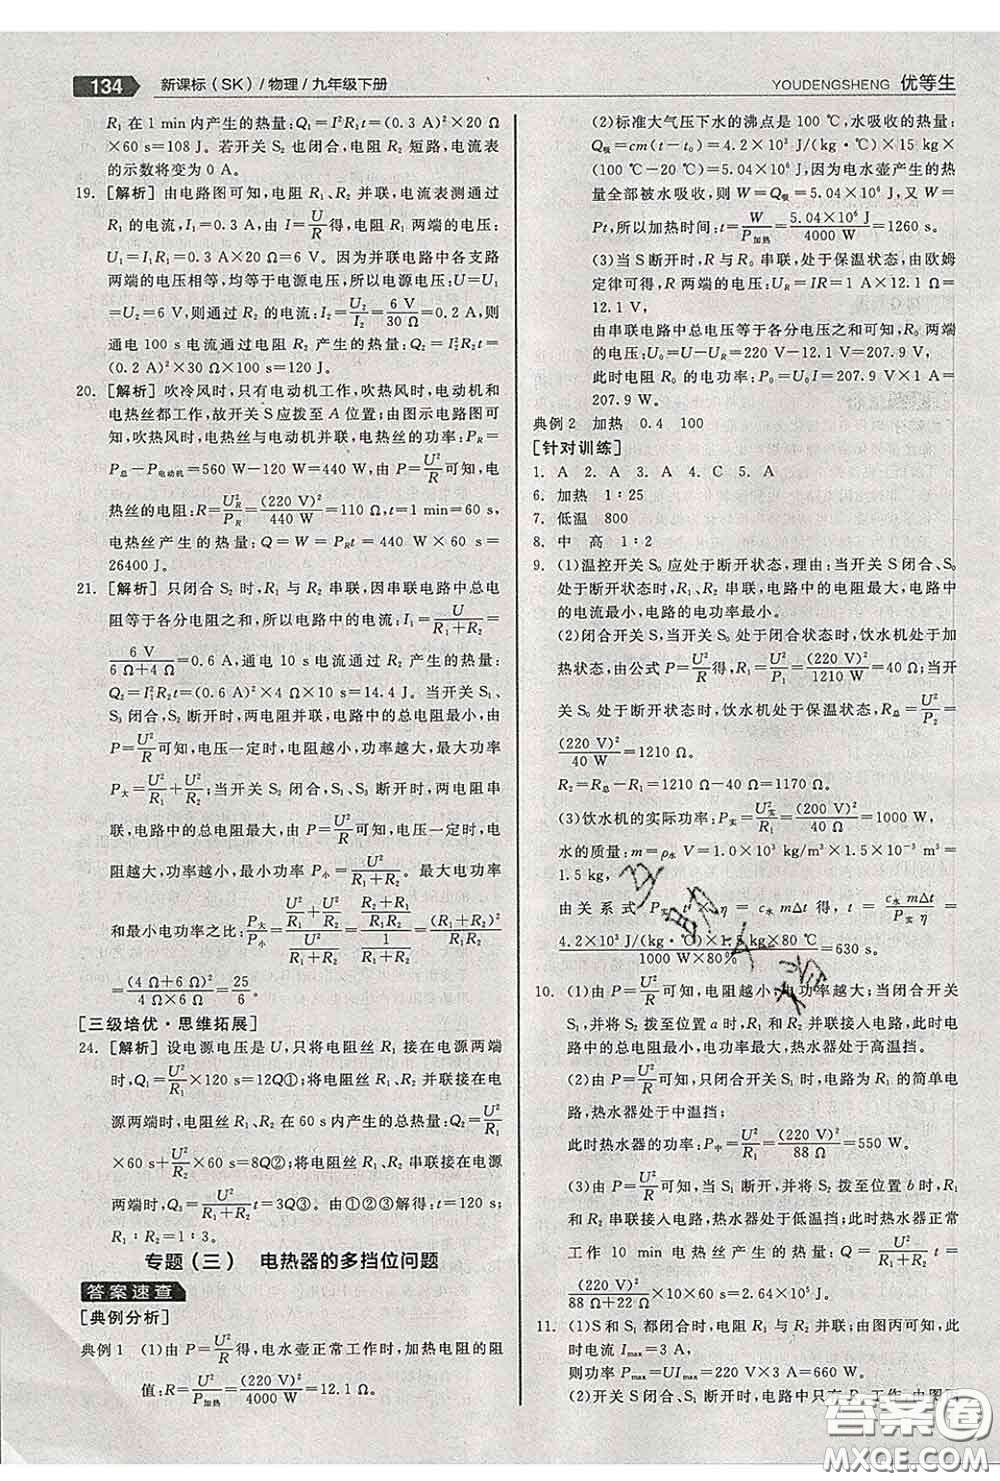 134 新课标(SK)/物理/九年级下册
YOUDENGSHENG 优等生
R₁ 在 1 min 内产生的热量:Q₁=I²R₁t=(0.3 A)²×20 Ω
×60 s=108 J。若开关 S₂ 也闭合,电阻 R₂ 短路,电流表
的示数将变为 0 A。
19. [解析] 由电路图可知,电阻 R₁、R₂ 并联,电流表测通过
R₁ 的电流,I₁=0.3 A,由 I=U/R 得,R₁ 两端的电压:
U₁=I₁R₁=0.3 A×20 Ω=6 V。因为并联电路中各支路
两端的电压相等,均等于电源电压,所以电源电压:U=U₁
=U₂=6 V,则通过 R₂ 的电流:I₂=U₂/I₂=6 V/30 Ω=0.2 A,则
通电 100 s 电流通过 R₂ 产生的热量:Q₂=I₂²R₂t=
(0.2 A)²×30 Ω×100 s=120 J。
20. [解析] 吹冷风时,只有电动机工作,吹热风时,电动机和
电热丝都工作,故开关 S 应拨至 A 位置;由图示电路图可
知,吹热风时,电热丝与电动机并联,电热丝的功率:P_R=
P总-P电动机=560 W-120 W=440 W。由 P=U²/R 可知,电
热丝的电阻:R=U_R²/P_R=(220 V)²/440 W=110 Ω,t=1 min=60 s,
电热丝产生的热量:Q=W=P_Rt=440 W×60 s=
26400 J。
21. [解析] 只闭合 S₂ 时,R₁ 与 R₂ 串联,因串联电路中总电
阻等于各分电阻之和,所以电路中的电流:I₁=U/(R₁+R₂)=
6 V/(6 Ω+4 Ω)=0.6 A,通电 10 s 电流通过 R₂ 产生的热量:
Q₂=I₁²R₂t=(0.6 A)²×4 Ω×10 s=14.4 J。当开关 S₁、
S₃ 闭合,S₂ 断开时,两电阻并联,电路中的总电阻最小,由
P=U²/R 可知,电压一定时,电阻越小,功率越大,最大功率
P大=U²/R₁+U²/R₂;当开关 S₂ 闭合,S₁、S₃ 断开时,两电阻串
联,电路中的总电阻最大,由 P=U²/R 可知,电压一定时,电
阻越大,功率越小,最小功率 P小=U²/(R₁+R₂)。最大电功率
和最小电功率之比:P大/P小=(U²/R₁+U²/R₂)/(U²/(R₁+R₂))=((R₂+R₁)/R₁R₂)/(1/(R₁+R₂))=(R₁+R₂)²/R₁R₂
=(4 Ω+6 Ω)²/(4 Ω×6 Ω)=25/6。
[三级培优·思维拓展]
24. [解析] 设电源电压是 U,只将电阻丝 R₁ 接在电源两端
时,Q₁=U²/R₁×120 s=12Q①;将电阻丝 R₁、R₂ 并联接在电
源两端时,电阻丝 R₁、R₂ 在 60 s 内产生的总热量:Q₂=U²/R₁
×60 s+U²/R₂×60 s=8Q②;将电阻丝 R₁、R₂ 串联接在电源
两端时,Q₃=U²/(R₁+R₂)t=3Q③。由①②③解得 t=40 s,R₁
:R₂=1:3。
专题(三) 电热器的多挡位问题
答案速查
[典例分析]
典例 1 (1)由 P=U²/R 得,电水壶正常工作时,加热电阻的阻
值:R=U²/P加热=(220 V)²/4000 W=12.1 Ω。
(2)标准大气压下水的沸点是 100 ℃,水吸收的热量:
Q吸=cm(t-t₀)=4.2×10³ J/(kg·℃)×15 kg×
(100 ℃-20 ℃)=5.04×10⁶ J。因为电水壶产生的热
量全部被水吸收,则 W=Q吸=5.04×10⁶ J,又由 W=
Pt,所以加热时间:t=W/P加热=5.04×10⁶ J/4000 W=1260 s。
(3)当 S 断开时,R 与 R₀ 串联,处于保温状态,由欧姆
定律可得,R 两端的电压:U_R=IR=1 A×12.1 Ω=
12.1 V,
由串联电路中总电压等于各分电压之和可知,R₀ 两端
的电压:U₀=U-U_R=220 V-12.1 V=207.9 V,
此时电阻 R₀ 的电功率:P₀=U₀I=207.9 V×1 A=
207.9 W。
典例 2 加热 0.4 100
[针对训练]
1. A 2. A 3. A 4. C 5. A
6. 加热 1:25
7. 低温 800
8. 中 高 1:2
9. (1)温控开关 S₀ 应处于断开状态,理由:当开关 S 闭合、S₀
处于断开状态时,R₁、R₂ 串联,电路中的电阻最大,电路中
的电流最小,电路的电功率最小。
(2)闭合开关 S,当开关 S₀ 处于闭合状态时,饮水机处于加
热状态,由公式 P=U²/R 得,R₁=U²/P₁=(220 V)²/1210 W=40 Ω;当开
关 S₀ 处于断开状态时,饮水机处于保温状态,R总=U²/P₂=
(220 V)²/40 W=1210 Ω。
R₂=R总-R₁=1210 Ω-40 Ω=1170 Ω。
(3)饮水机的实际功率:P实=U实²/R₁=(200 V)²/40 Ω=1000 W,
水的质量:m=ρ水 V=1.0×10³ kg/m³×1.5×10⁻³ m³=
1.5 kg,
由关系式 P实 t η=c水 mΔt 得,t=c水 mΔt/P实 η=
4.2×10³ J/(kg·℃)×1.5 kg×80 ℃/1000 W×80%=630 s。
10. (1)由 P=U²/R 可知,电阻越小,电功率越大;当闭合开关
S₁,并将 S₂ 拨至位置 a 时,R₁ 和 R₂ 并联接入电路,此时电
路中的总电阻最小,电功率最大,热水器处于高温挡。
(2)由 P=U²/R 可知,只闭合开关 S₁ 时,电路为 R₁ 的简单电
路,热水器处于中温挡;
此时热水器的功率:P中=U²/R₁=(220 V)²/88 Ω=550 W。
(3)由 P=U²/R 可知,当 S₁ 断开,并将 S₂ 拨至位置 b 时,R₁
和 R₂ 串联接入电路,热水器处于低温挡;此时电路正常
工作 10 min 电热丝产生的热量:Q=U²/(R₁+R₂)t=
(220 V)²/(88 Ω+22 Ω)×10×60 s=2.64×10⁵ J。
11. (1)S 和 S₁ 都闭合时,电阻 R₁ 与 R₂ 并联;由图丙可知,此
时电流 Imax=3 A,
则功率 Pmax=UImax=220 V×3 A=660 W。
(2)开关 S 闭合、S₁ 断开时,电路中只有 R₁ 工作,由图丙
互助文档
答案圈
MXQE.COM